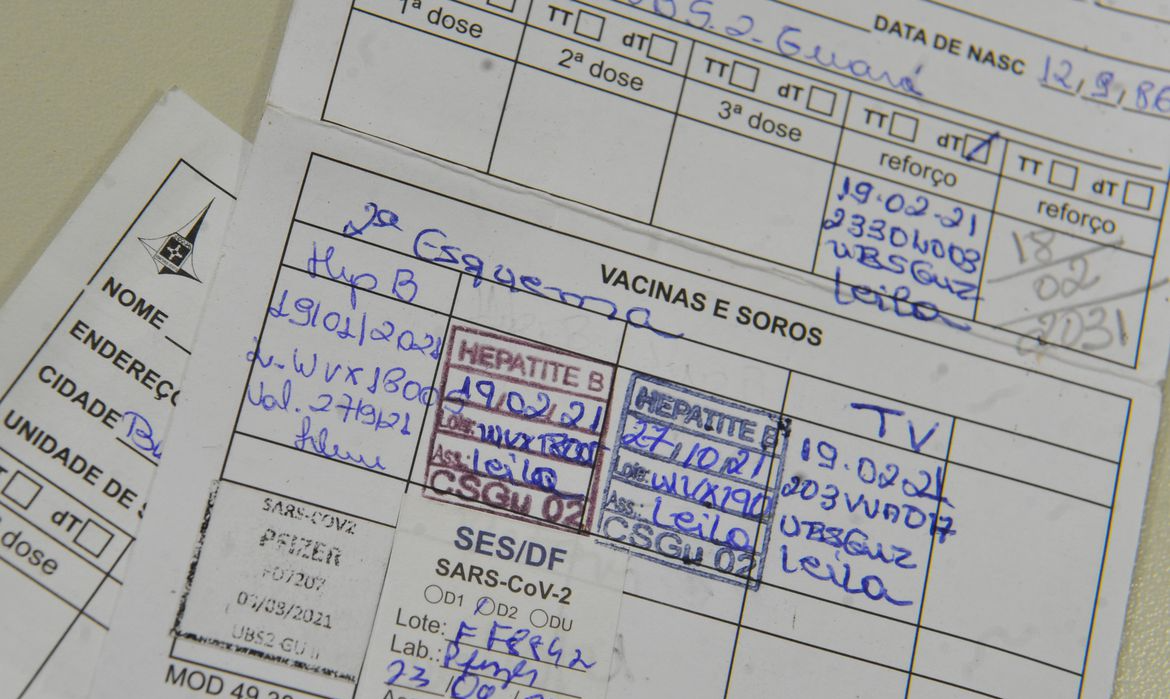 UBS.2-Guará
DATA DE NASC 12,9,86
1ª dose
TT dT
2ª dose
TT dT
3ª dose
TT dT
reforço
19.02-21
UBSGU2
Leila
TT dT
reforço
18
02
2031
VACINAS E SOROS
2ª Esquema
Hep B
19/01/2021
Val. 27/9/21
HEPATITE B
19/02/21
Lote:
Ass.: Leila
CSGu 02
HEPATITE B
27/10/21
Lote: WVX190
Ass.: Leila
CSGU 02
TV
19.02.21
203VVA017
UBSGU2
Leila
SARS-COV2
PFIZER
FD7207
UBS2-GU II
SES/DF
SARS-CoV-2
D1 D2 DU
Lote: FF8842
Lab.: Pfizer
MOD 49
NOME
ENDEREÇ
CIDADE
UNIDADE DE S
dT
dose